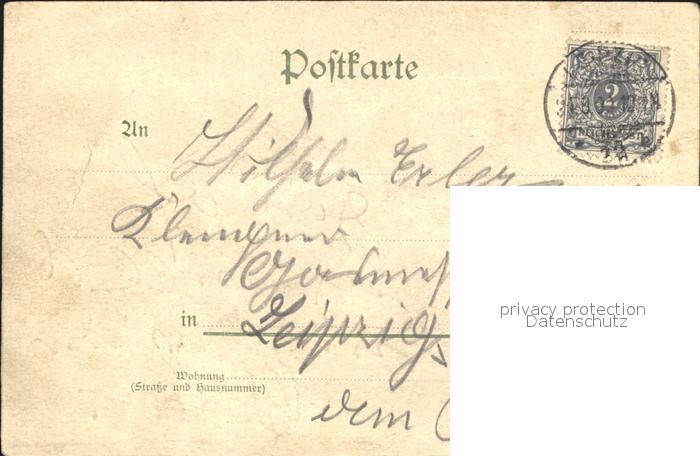 Postkarte
An
Wilhelm Erler
Klempner
in Leipzig
Wohnung
(Straße und Hausnummer)
dem
2
privacy protection
Datenschutz